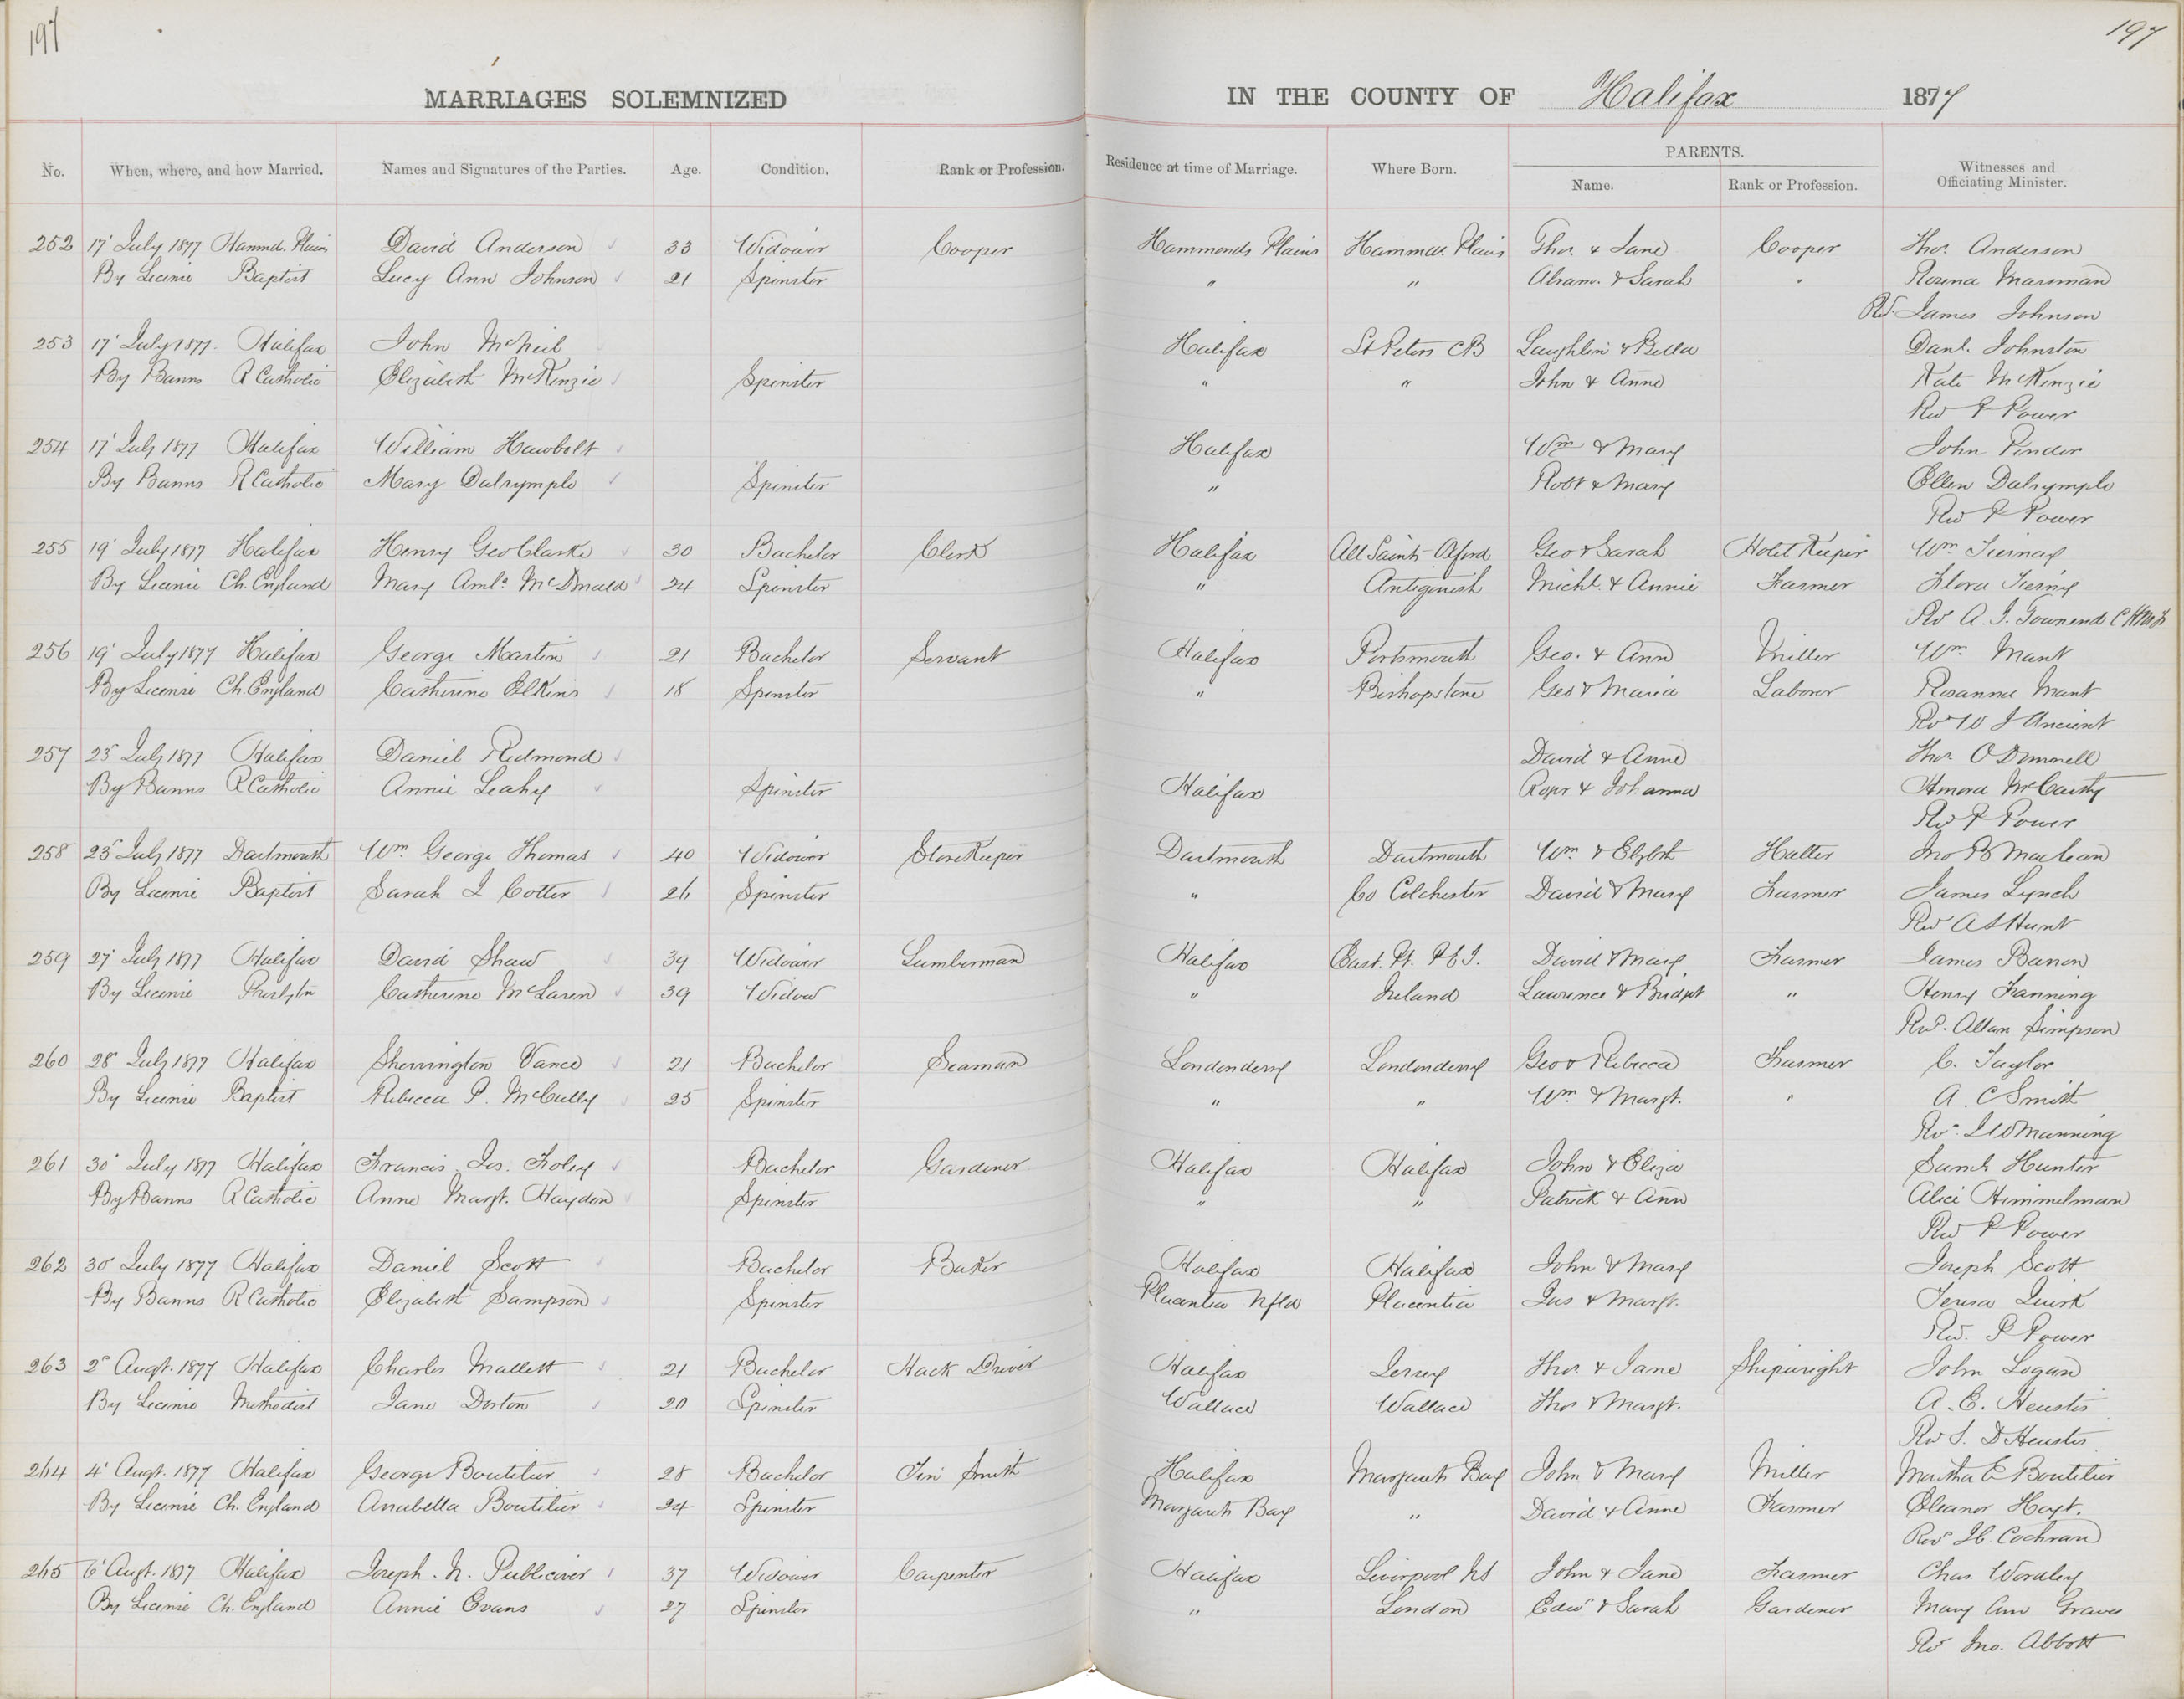 197
197
MARRIAGES SOLEMNIZED IN THE COUNTY OF Halifax 1877
No. When, where, and how Married. Names and Signatures of the Parties. Age. Condition. Rank or Profession. Residence at time of Marriage. Where Born. PARENTS. Name. Rank or Profession. Witnesses and Officiating Minister.
252 17' July 1877 Hammd. Plains David Anderson 33 Widower Cooper Hammonds Plains Hammds. Plains Thos. & Jane Cooper Thos. Anderson
By License Baptist Lucy Ann Johnson 21 Spinster " " Abram. & Sarah " Rosena Marsman
Rev. James Johnson
253 17' July 1877. Halifax John McNeil Halifax St Peters CB Laughlin & Bella Danl. Johnston
By Banns R Catholic Elizabeth McKenzie Spinster " " John & Anne Kate McKenzie
Rev P Power
254 17' July 1877 Halifax William Hawbolt Halifax Wm & Mary John Pinder
By Banns R Catholic Mary Dalrymple Spinster " Robt & Mary Ellen Dalrymple
Rev P Power
255 19' July 1877 Halifax Henry Geo Clarke 30 Bachelor Clerk Halifax All Saints Oxford Geo & Sarah Hotel Keeper Wm. Tierney
By License Ch. England Mary Amla. McDonald 24 Spinster " Antigonish Michl. & Annie Farmer Flora
Rev A. J. Townend
256 19' July 1877 Halifax George Martin 21 Bachelor Servant Halifax Portsmouth Geo. & Ann Miller Wm. Mant
By License Ch. England Catherine Elkins 18 Spinster " Bishopstone Geo & Maria Laborer Rosanna Mant
Rev W J Ancient
257 25 July 1877 Halifax Daniel Redmond David & Anne Thos. O Donnell
By Banns R Catholic Annie Leahy Spinster Halifax Roger & Johanna Honora McCarthy
Rev P Power
258 25 July 1877 Dartmouth Wm. George Thomas 40 Widower Store Keeper Dartmouth Dartmouth Wm. & Elizbth Hatter Jno B Maclean
By License Baptist Sarah I Cotter 26 Spinster " Co Colchester David & Mary Farmer James Lynch
Rev A S Hunt
259 27' July 1877 Halifax David Shaw 39 Widower Lumberman Halifax East. Pt. P.E.I. David & Mary Farmer James Barron
By License Presbytn Catherine McLaren 39 Widow " Ireland Lawrence & Bridget " Henry Fanning
Revd. Allan Simpson
260 28' July 1877 Halifax Sherrington Vance 21 Bachelor Seaman Londonderry Londonderry Geo & Rebecca Farmer C. Taylor
By License Baptist Rebecca P. McCully 25 Spinster " " Wm & Margt. " A. C Smith
Rev. J W Manning
261 30' July 1877 Halifax Francis Jos. Foley Bachelor Gardener Halifax Halifax John & Eliza Saml. Hunter
By Banns R Catholic Anne Margt. Hayden Spinster " " Patrick & Ann Alice Himmelman
Rev P Power
262 30 July 1877 Halifax Daniel Scott Bachelor Baker Halifax Halifax John & Mary Joseph Scott
By Banns R Catholic Elizabeth Sampson Spinster Placentia Nfld Placentia Jas & Margt. Teresa Quirk
Rev. P Power
263 2' Augt. 1877 Halifax Charles Mallett 21 Bachelor Hack Driver Halifax Jersey Thos. & Jane Shipwright John Logan
By License Methodist Jane Dorton 20 Spinster Wallace Wallace Thos & Margt. A. E. Heustis
Rev S. D Heustis
264 4' Augt. 1877 Halifax George Boutilier 28 Bachelor Tin Smith Halifax Margarets Bay John & Mary Miller Martha E Boutilier
By License Ch. England Anabella Boutilier 24 Spinster Margarets Bay " David & Anne Farmer Eleanor Hoyt.
Rev J C Cochran
265 6' Augt. 1877 Halifax Joseph. N. Publicover 37 Widower Carpenter Halifax Liverpool NS John & Jane Farmer Chas. Wordley
By License Ch. England Annie Evans 27 Spinster " London Edwd & Sarah Gardener Mary Ann Graves
Rev Jno. Abbott